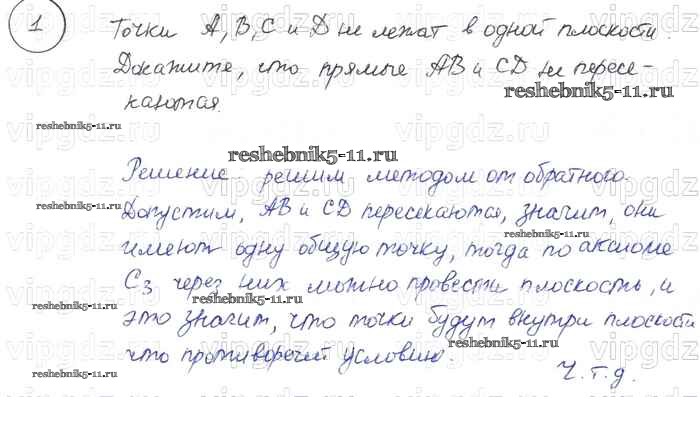 1 Точки A, B, C и D не лежат в одной плоскости.
Докажите, что прямые AB и CD не пересе-
каются.
reshebnik5-11.ru
reshebnik5-11.ru
reshebnik5-11.ru
reshebnik5-11.ru
Решение: решим методом от обратного.
Допустим, AB и CD пересекаются, значит, они
reshebnik5-11.ru
reshebnik5-11.ru
имеют одну общую точку, тогда по аксиоме
C3 через них можно провести плоскость, и
reshebnik5-11.ru
reshebnik5-11.ru
это значит, что точки будут внутри плоскости
что противоречит условию.
reshebnik5-11.ru
reshebnik5-11.ru
Ч.т.д.